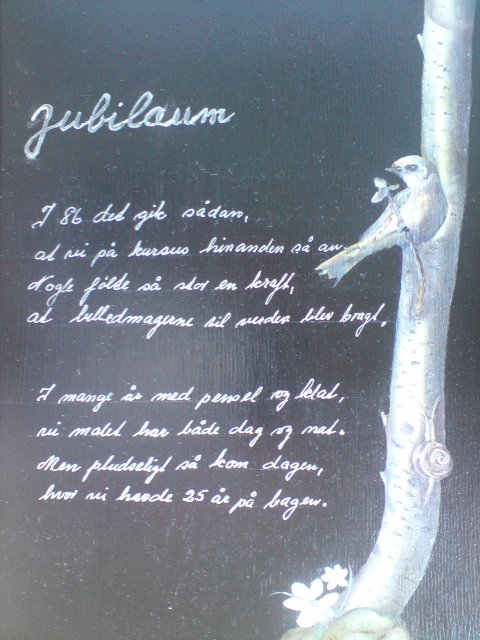 Jubilæum
I 86 det gik sådan,
at vi på kursus hinanden så an.
Nogle følte så stor en kraft,
at billedmagerne til verden blev bragt.
I mange år med pensel og klat,
vi malet har både dag og nat.
Men pludseligt så kom dagen,
hvor vi havde 25 år på bagen.